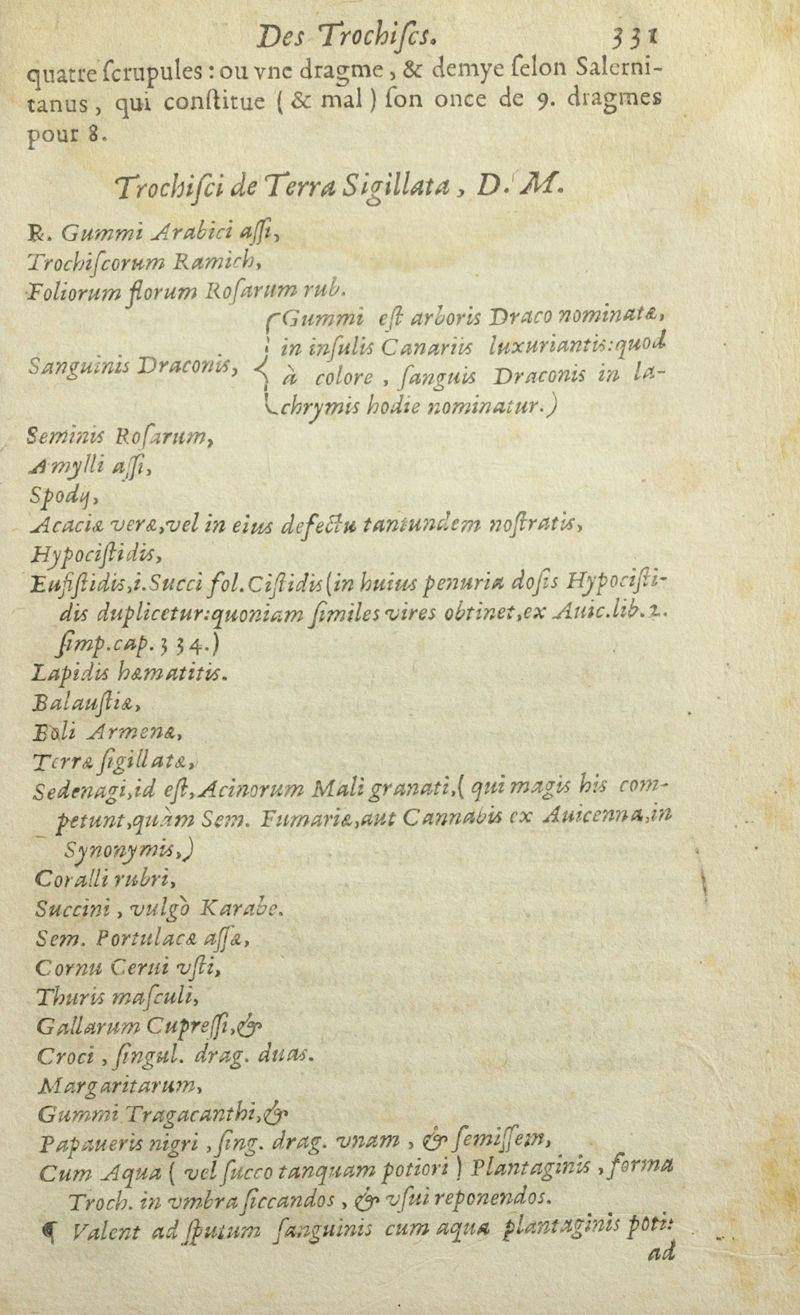 Des Trochiſcs. 331
quatre ſcrupules : ou vne dragme, & demye ſelon Salerni-
tanus, qui conſtitue ( & mal ) ſon once de 9. dragmes
pour 8.
Trochiſci de Terra Sigillata, D. M.
℞. Gummi Arabici aſſi,
Trochiſcorum Ramich,
Foliorum florum Roſarum rub.
Gummi eſt arboris Draco nominatæ,
in inſulis Canariis luxuriantis: quod
Sanguinis Draconis, à colore, ſanguis Draconis in la-
chrymis hodie nominatur.)
Seminis Roſarum,
Amylli aſſi,
Spodij,
Acaciæ veræ, vel in eius defectu tantundem noſtratis,
Hypociſtidis,
Eufiſtidis, i. Succi fol. Ciſtidis (in huius penuria doſis Hypociſti-
dis duplicetur: quoniam ſimiles vires obtinet, ex Auic. lib. 2.
ſimp. cap. 334.)
Lapidis hæmatitis.
Balauſtiæ,
Boli Armenæ,
Terræ ſigillatæ,
Sedenagi, id eſt, Acinorum Mali granati, ( qui magis his com-
petunt, quàm Sem. Fumariæ, aut Cannabis ex Auicenna, in
Synonymis,)
Coralli rubri,
Succini, vulgò Karabe.
Sem. Portulacæ aſſæ,
Cornu Cerui vſti,
Thuris maſculi,
Gallarum Cupreſſi, &
Croci, ſingul. drag. duas.
Margaritarum,
Gummi Tragacanthi, &
Papaueris nigri, ſing. drag. vnam, & ſemiſſem,
Cum Aqua ( vel ſucco tanquam potiori ) Plantaginis, forma
Troch. in vmbra ſiccandos, & vſui reponendos.
¶ Valent ad ſputum ſanguinis cum aqua plantaginis poti:
ad